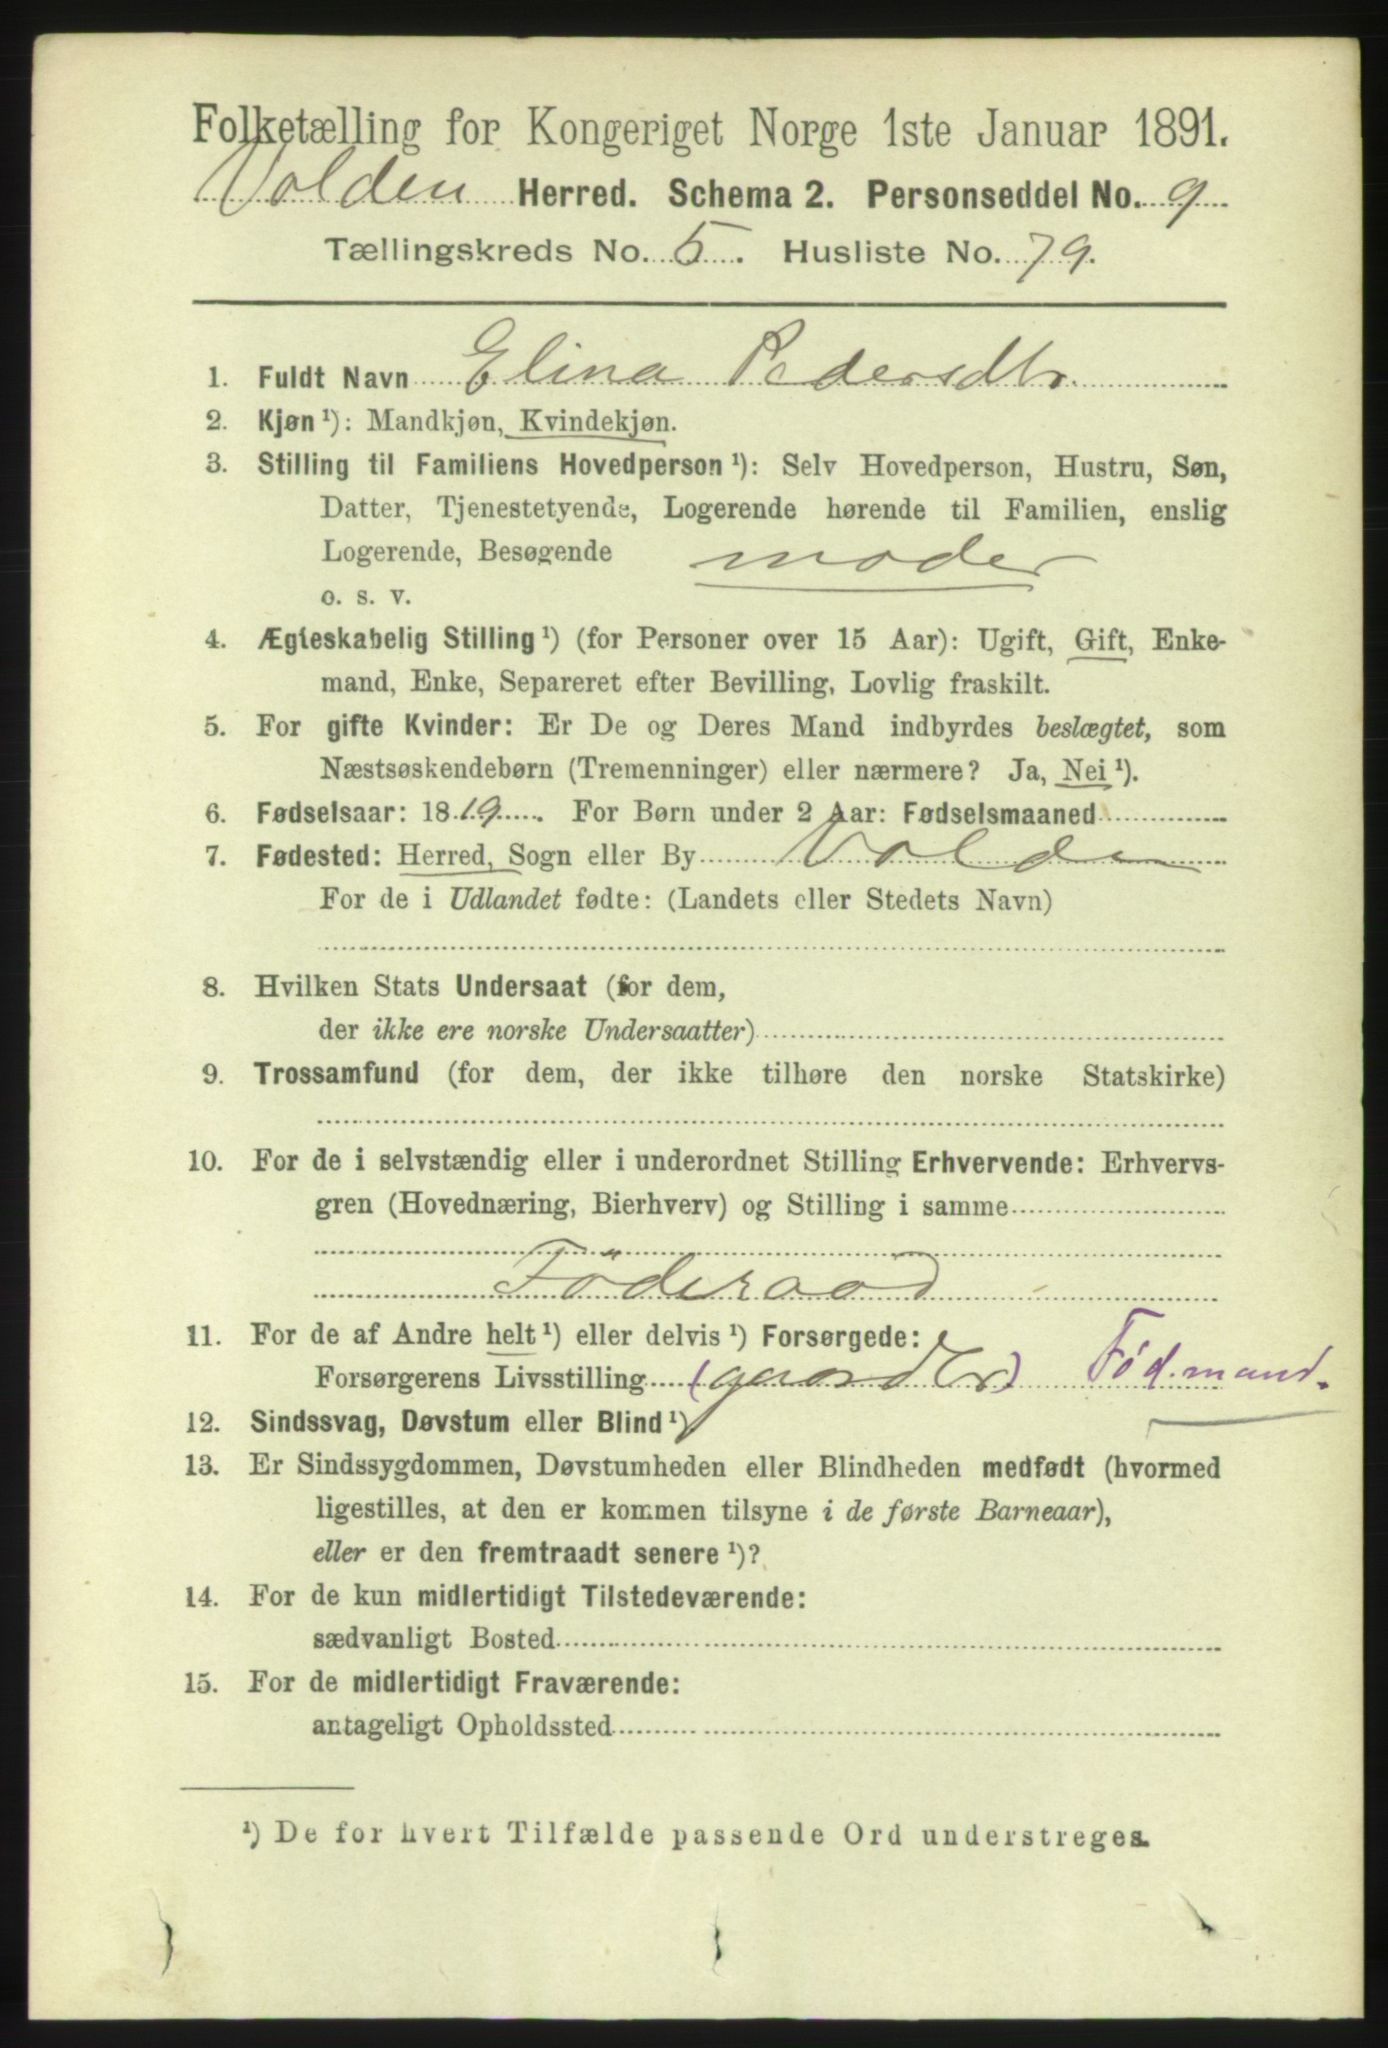 Folketælling for Kongeriget Norge 1ste Januar 1891.
Volden Herred. Schema 2. Personseddel No. 9
Tællingskreds No. 5. Husliste No. 79.
1. Fuldt Navn Elina Pedersdtr.
2. Kjøn ¹): Mandkjøn, Kvindekjøn.
3. Stilling til Familiens Hovedperson ¹): Selv Hovedperson, Hustru, Søn,
Datter, Tjenestetyende, Logerende hørende til Familien, enslig
Logerende, Besøgende moder
o. s. v.
4. Ægteskabelig Stilling ¹) (for Personer over 15 Aar): Ugift, Gift, Enke-
mand, Enke, Separeret efter Bevilling, Lovlig fraskilt.
5. For gifte Kvinder: Er De og Deres Mand indbyrdes beslægtet, som
Næstsøskendebørn (Tremenninger) eller nærmere? Ja, Nei ¹).
6. Fødselsaar: 1819. For Børn under 2 Aar: Fødselsmaaned
7. Fødested: Herred, Sogn eller By Volden
For de i Udlandet fødte: (Landets eller Stedets Navn)
8. Hvilken Stats Undersaat (for dem,
der ikke ere norske Undersaatter)
9. Trossamfund (for dem, der ikke tilhøre den norske Statskirke)
10. For de i selvstændig eller i underordnet Stilling Erhvervende: Erhvervs-
gren (Hovednæring, Bierhverv) og Stilling i samme
Föderaad
11. For de af Andre helt ¹) eller delvis ¹) Forsørgede:
Forsørgerens Livsstilling (gaardbr) Fød.mand.
12. Sindssvag, Døvstum eller Blind ¹)
13. Er Sindssygdommen, Døvstumheden eller Blindheden medfødt (hvormed
ligestilles, at den er kommen tilsyne i de første Barneaar),
eller er den fremtraadt senere ¹)?
14. For de kun midlertidigt Tilstedeværende:
sædvanligt Bosted
15. For de midlertidigt Fraværende:
antageligt Opholdssted
¹) De for hvert Tilfælde passende Ord understreges.